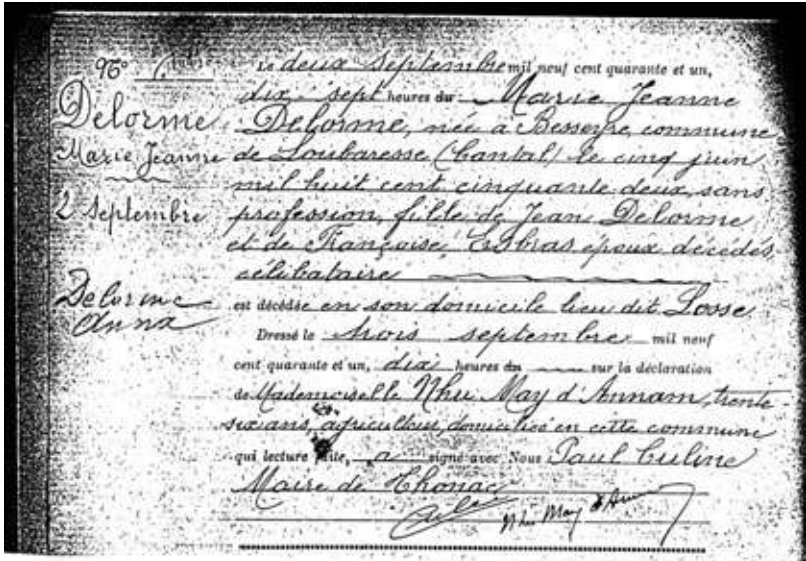 96°
Delorme
Marie Jeanne
2 Septembre
Delorme
Anna
Le deux Septembre mil neuf cent quarante et un,
dix-sept heures du Marie Jeanne
Delorme, née à Besseyre, commune
de Loubaresse (Cantal) le cinq juin
mil huit cent cinquante deux, sans
profession, fille de Jean Delorme
et de Françoise époux décédés,
célibataire
est décédée en son domicile lieu dit Losse
Dressé le trois septembre mil neuf
cent quarante et un, dix heures du sur la déclaration
de Mademoiselle Nhu May d'Annam, trente
six ans, agriculteur, domicilié en cette commune
qui lecture faite, a signé avec Nous Paul Culine
Maire de Thonac
Nhu May d'Annam